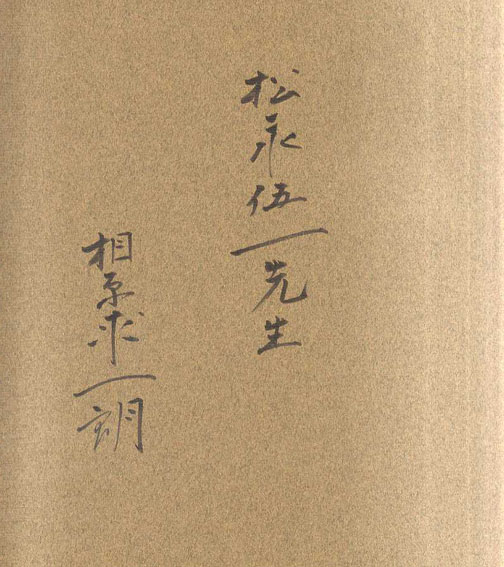 松永伍一先生
相原求一朗